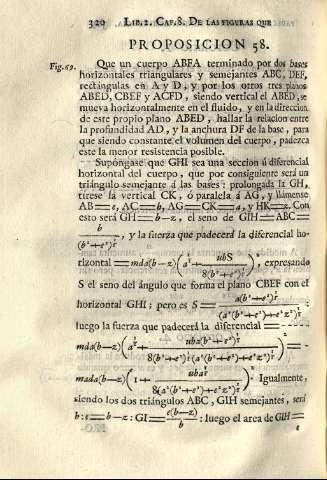 320 LIB.2. CAP.8. DE LAS FIGURAS QUE
PROPOSICION 58.
Fig.69. Que un cuerpo ABFA terminado por dos bases
horizontales triangulares y semejantes ABC, DEF,
rectángulas en A y D, y por los otros tres planos
ABED, CBEF y ACFD, siendo vertical el ABED, se
mueva horizontalmente en el fluido, y en la direccion
de este propio plano ABED, hallar la relacion entre
la profundidad AD, y la anchura DF de la base, para
que siendo constante el volumen del cuerpo, padezca
este la menor resistencia posible.
Supóngase que GHI sea una seccion ú diferencial
horizontal del cuerpo, que por consiguiente será un
triángulo semejante á las bases: prolongada la GH,
tírese la vertical CK, ó paralela á AG, y llámense
AB=e, AC=b, AG=CK=a, y HK=z. Con
esto será GH=b-z, el seno de GIH=ABC=
b/(b²+e²)^½, y la fuerza que padecerá la diferencial ho-
rizontal=mda(b-z)(a^½+ubS/8(b²+e²)^½)², expresando
S el seno del ángulo que forma el plano CBEF con el
horizontal GHI; pero es S=a(b²+e²)^½/(a²(b²+e²)+e²z²)^½:
luego la fuerza que padecerá la diferencial=
mda(b-z)(a^½+uba(b²+e²)^½/8(b²+e²)^½(a²(b²+e²)+e²z²)^½)²=
mada(b-z)(1+uba^½/8(a²(b²+e²)+e²z²)^½)². Igualmente,
siendo los dos triángulos ABC, GIH semejantes, será
b:e=b-z:GI=e(b-z)/b: luego el area de GIH=
e